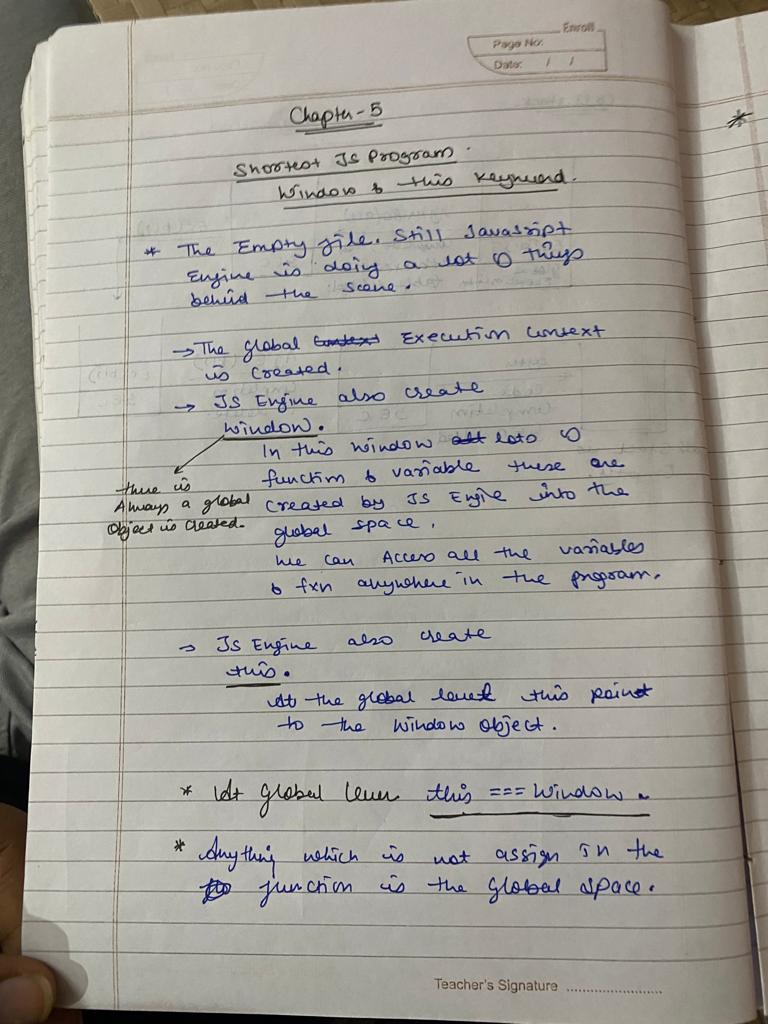 Enroll
Page No:
Date: / /
Chapter-5
Shortest JS Program.
Window & this Keyword.
* The Empty file. Still Javasript
Engine is doing a lot of things
behind the scene.
→ The global Context Execution Context
is Created.
→ JS Engine also create
Window.
In this window all lots of
function & variable these are
Created by JS Engie into the
global space.
we can Access all the variables
& fxn anywhere in the program.
there is
Always a global
Object is Created.
→ JS Engine also create
this.
At the global level this point
to the Window object.
* At global level this === Window.
* Anything which is not assign in the
function is the global space.
Teacher's Signature ........................
*